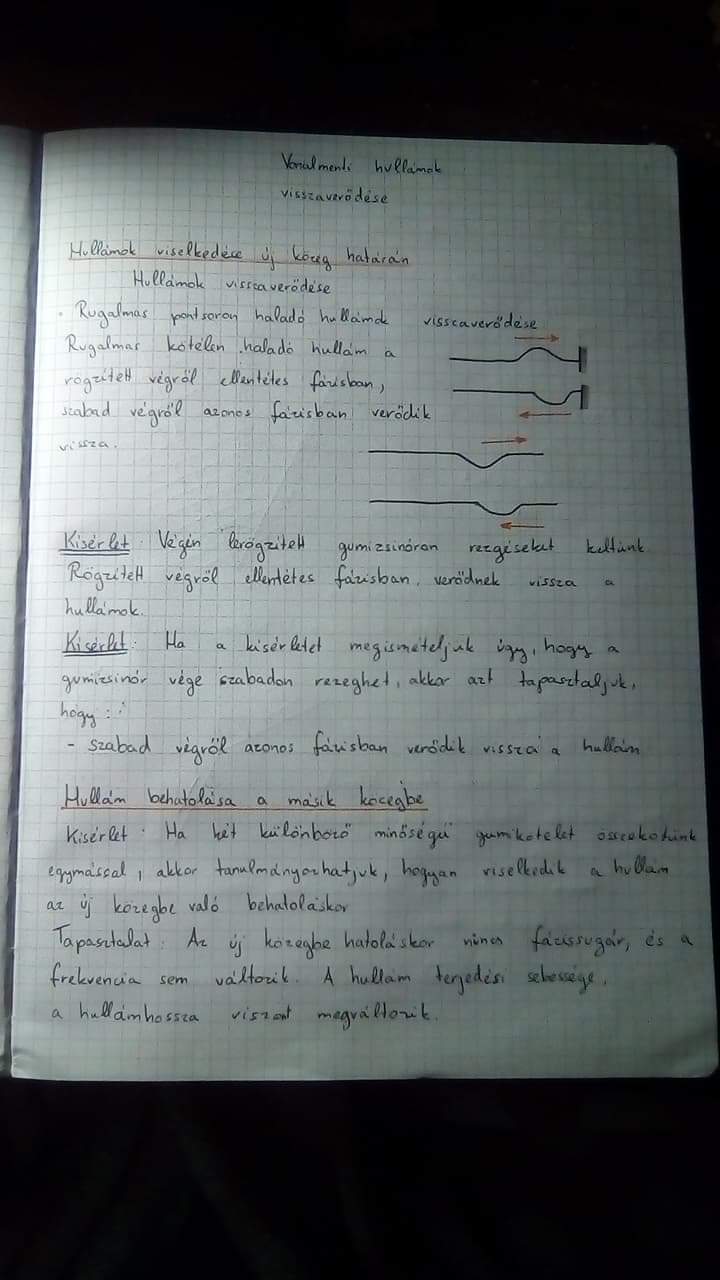 Vonalmenti hullámok
visszaverődése
Hullámok viselkedése új közeg határán
Hullámok visszaverődése
• Rugalmas pontsoron haladó hullámok visszaverődése
Rugalmas kötélen haladó hullám a
rögzített végről ellentétes fázisban,
szabad végről azonos fázisban verődik
vissza.
Kísérlet: Végén lerögzített gumizsinóron rezgéseket keltünk
Rögzített végről ellentétes fázisban verődnek vissza a
hullámok.
Kísérlet: Ha a kísérletet megismételjük úgy, hogy a
gumizsinór vége szabadon rezeghet, akkor azt tapasztaljuk,
hogy:
- szabad végről azonos fázisban verődik vissza a hullám
Hullám behatolása a másik közegbe
Kísérlet: Ha két különböző minőségű gumikötelet összekötünk
egymással, akkor tanulmányozhatjuk, hogyan viselkedik a hullám
az új közegbe való behatoláskor
Tapasztalat: Az új közegbe hatoláskor nincs fázissugár, és a
frekvencia sem változik. A hullám terjedési sebessége,
a hullámhossza viszont megváltozik.